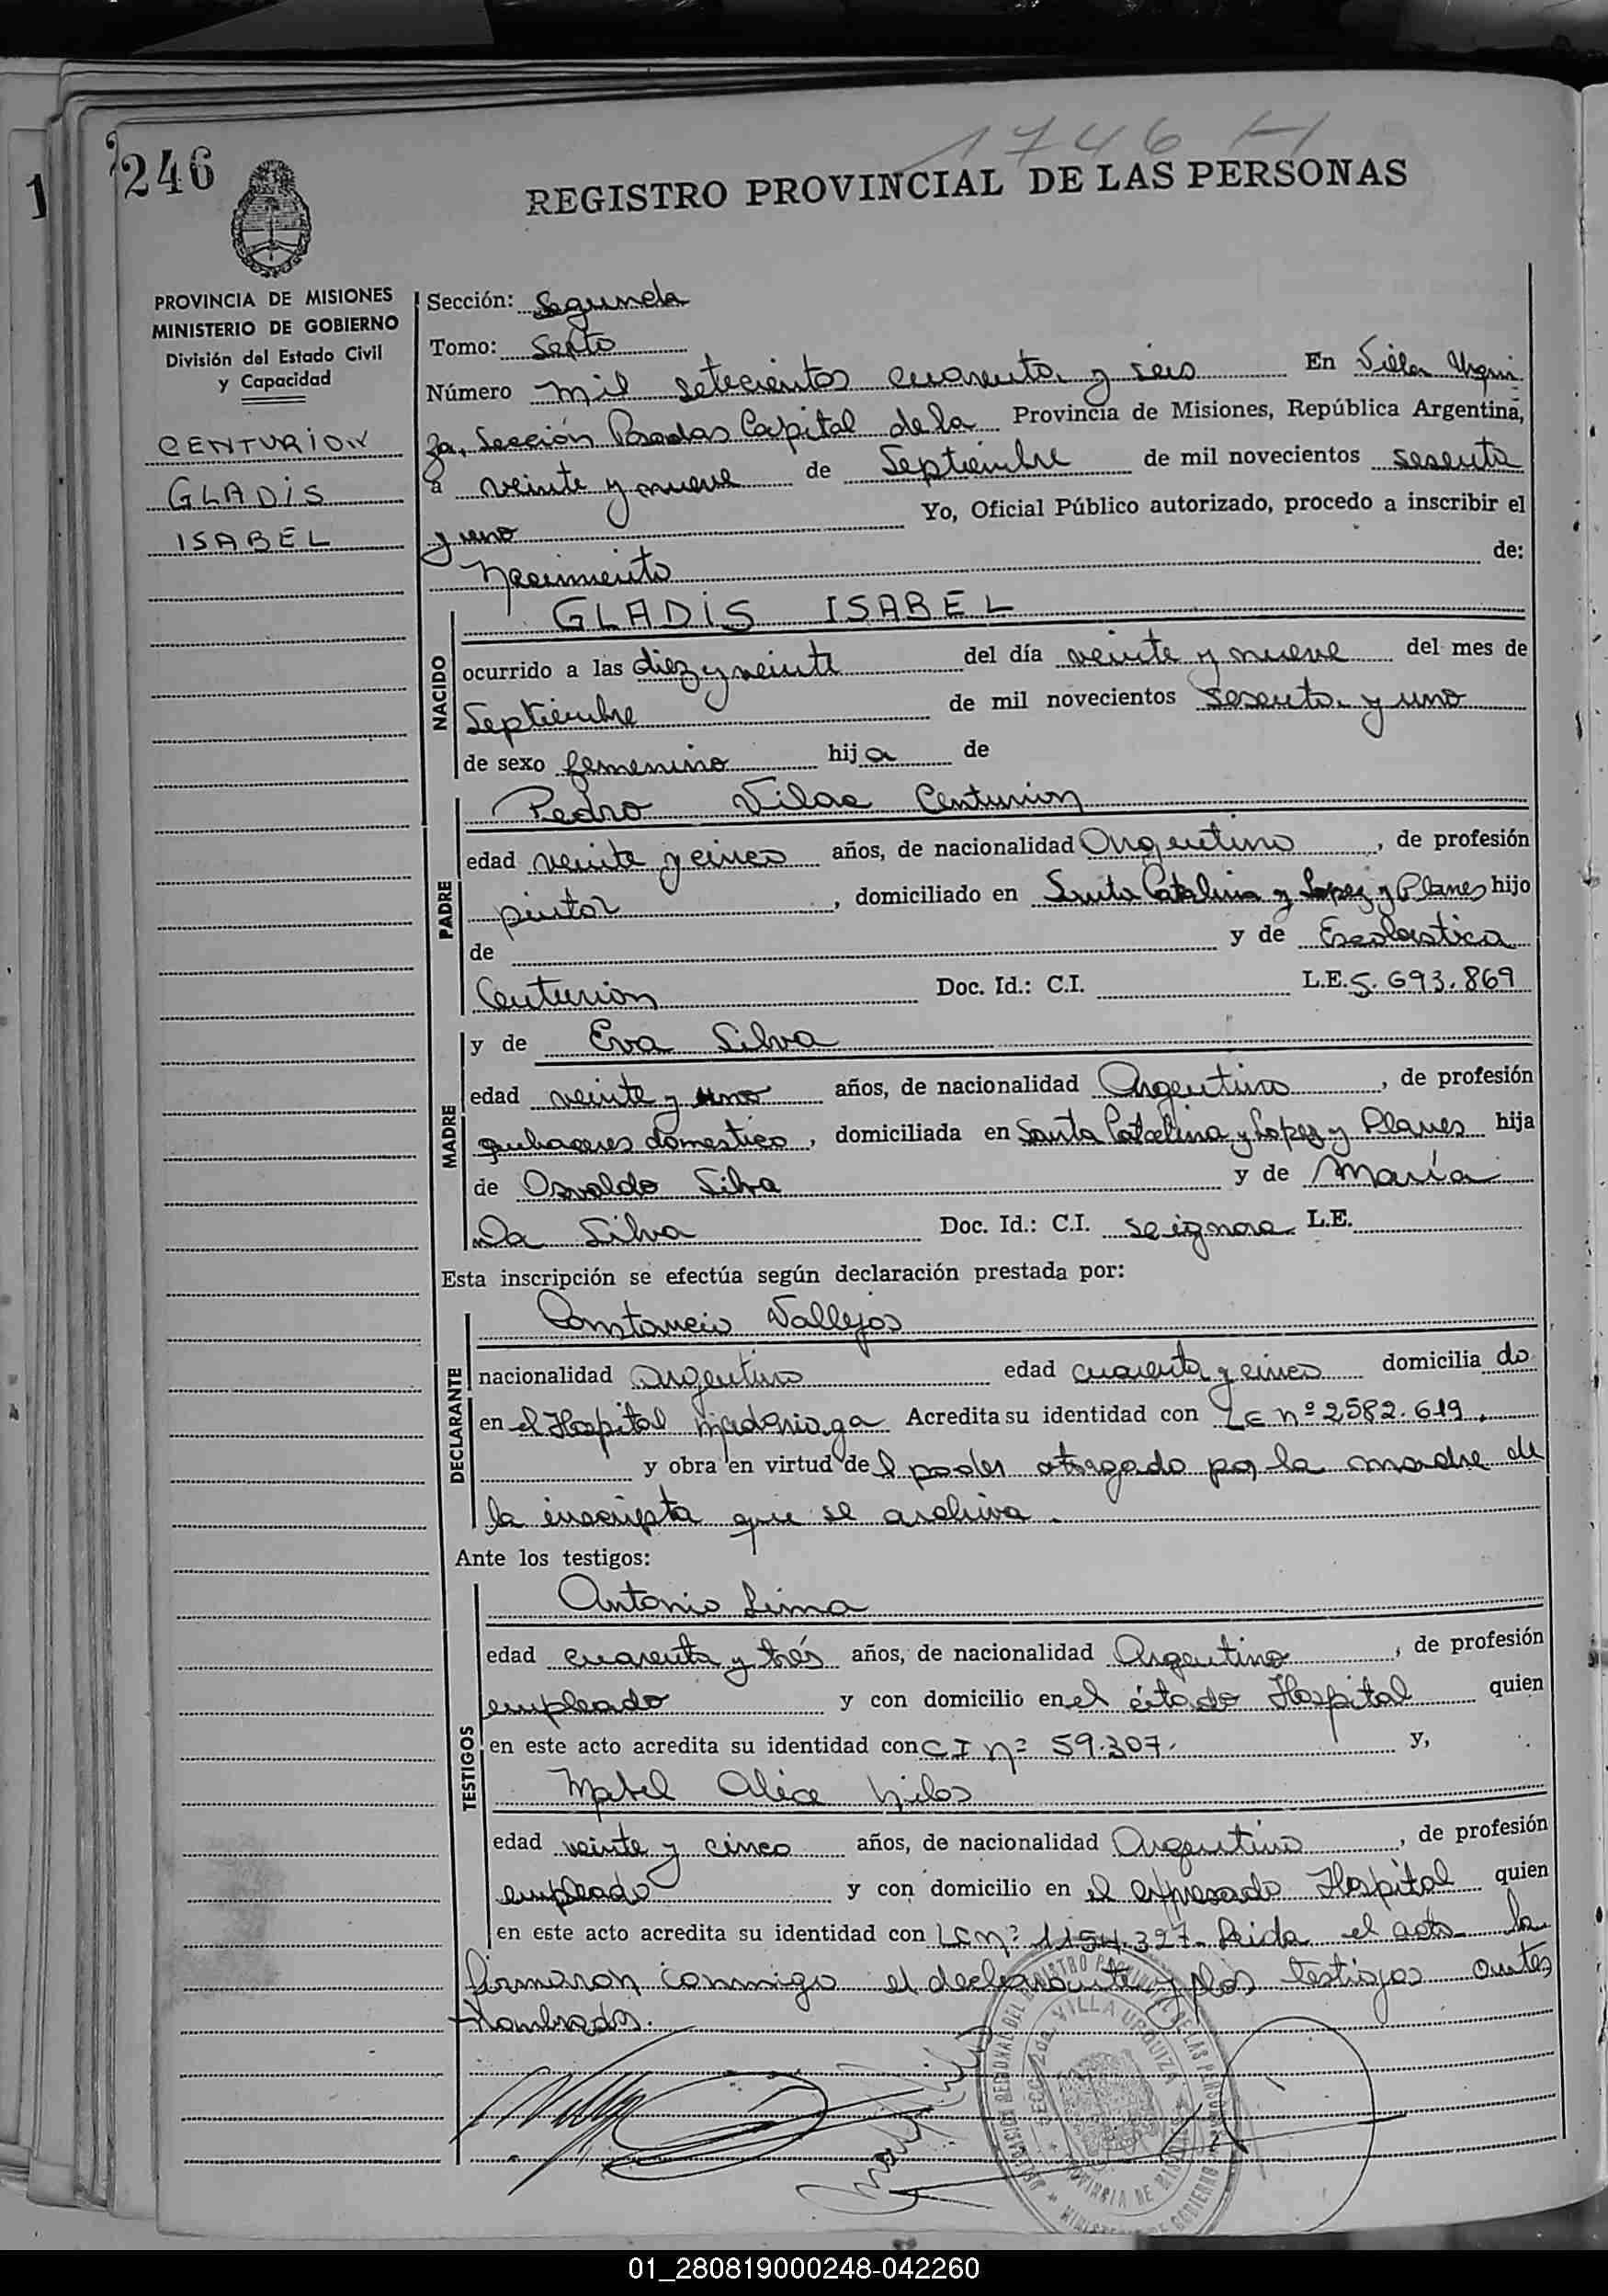 1746 H
246
REGISTRO PROVINCIAL DE LAS PERSONAS
PROVINCIA DE MISIONES
MINISTERIO DE GOBIERNO
División del Estado Civil
y Capacidad
CENTURION
GLADIS
ISABEL
Sección: Segunda
Tomo: Sexto
Número mil setecientos cuarenta y seis En Villa Urqui
za, Sección Posadas Capital de la Provincia de Misiones, República Argentina,
a veinte y nueve de Septiembre de mil novecientos sesenta
y uno Yo, Oficial Público autorizado, procedo a inscribir el
Nacimiento de:
NACIDO
GLADIS ISABEL
ocurrido a las diez y veinte del día veinte y nueve del mes de
Septiembre de mil novecientos sesenta y uno
de sexo femenino hija de
PADRE
Pedro Centurion
edad veinte y cinco años, de nacionalidad Argentino, de profesión
pintor, domiciliado en Santa Catalina y Lopez y Planes hijo
de y de Escolastica
Centurion Doc. Id.: C.I. L.E. 5.693.869
MADRE
y de Eva Silva
edad veinte y uno años, de nacionalidad Argentina, de profesión
quehaceres domestico, domiciliada en Santa Catalina y Lopez y Planes hija
de Osvaldo Silva y de María
Da Silva Doc. Id.: C.I. se ignora L.E.
Esta inscripción se efectúa según declaración prestada por:
DECLARANTE
Constancio Vallejos
nacionalidad argentino edad cuarenta y cinco domicilia do
en el Hospital Madariaga Acredita su identidad con nº 2582.619.
y obra en virtud del poder otorgado por la madre de
la inscripta que se archiva.
Ante los testigos:
TESTIGOS
Antonio Lima
edad cuarenta y trés años, de nacionalidad Argentino, de profesión
empleado y con domicilio en el citado Hospital quien
en este acto acredita su identidad con C I nº 59.307. y,
Mabel
edad veinte y cinco años, de nacionalidad Argentino, de profesión
empleado y con domicilio en el expresado Hospital quien
en este acto acredita su identidad con LC nº 1154.327. Leida el acta la
firmaron conmigo el declarante y los testigos antes
nombrados.
DELEGACION REGIONAL DEL REGISTRO PROVINCIAL DE LAS PERSONAS
SECC. 2da. VILLA URQUIZA
PROVINCIA DE MISIONES
MINISTERIO DE GOBIERNO
01_280819000248-042260